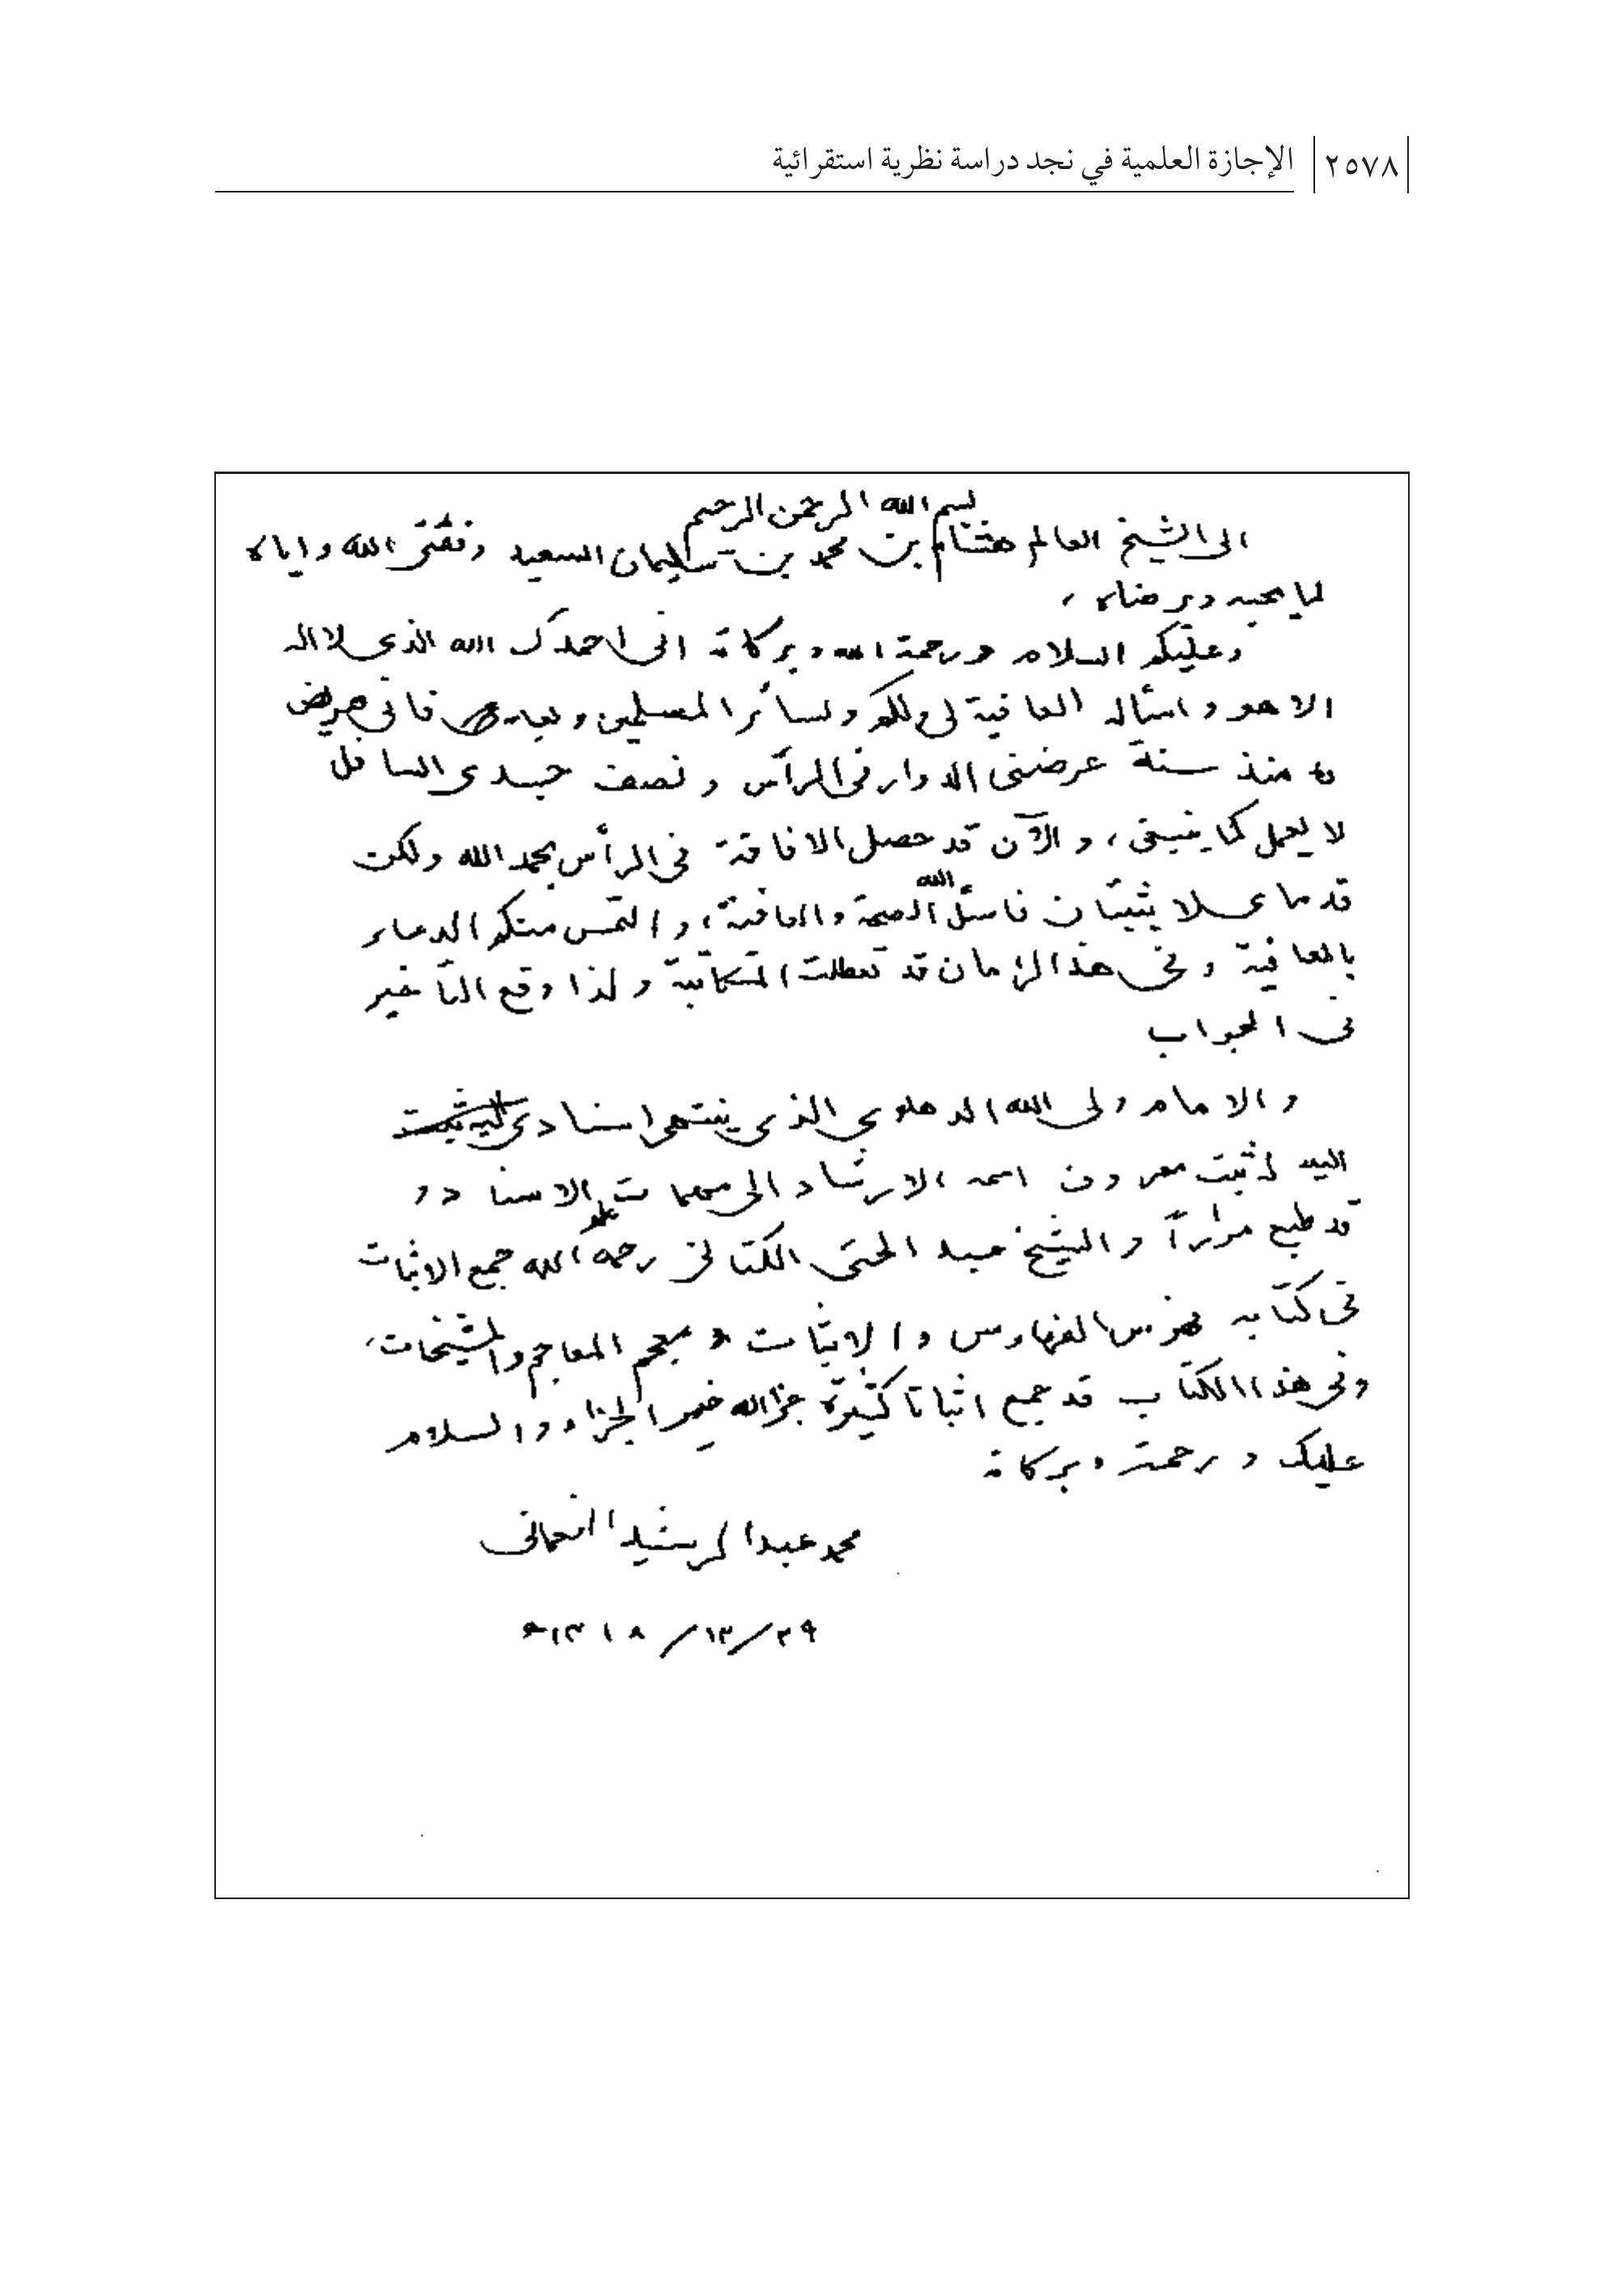 ٢٥٧٨ الإجازة العلمية في نجد دراسة نظرية استقرائية
بسم الله الرحمن الرحيم
الى الشيخ العالم هشام بن محمد بن سليمان السعيد وفقنى الله واياه
لما يحبه ويرضاه،
وعليكم السلام ورحمة الله وبركاته انى احمدك الله الذى لا اله
الا هو واسأله العافية لى ولكم ولسائر المسلمين وبعد فانى مريض
منذ سنة عرضنى الدوار فى الرأس ونصف جسدى السافل
لا يعمل كما ينبغى، والآن قد حصل الافاقة فى الرأس بحمد الله ولكن
قدماى لا يثبتان فاسئل الله الصحة والعافية، والتمس منكم الدعاء
بالعافية وفى هذا الزمان قد تعطلت المكاتبة ولذا وقع التأخير
فى الجواب
والامام ولى الله الدهلوى الذى ينتهى اسنادى
اليه له ثبت معروف اسمه الارشاد الى مهمات علم الاسناد و
قد طبع مراراً والشيخ عبد الحى الكتانى رحمه الله جمع الاثبات
فى كتابه فهرس الفهارس والاثبات ومعجم المعاجم والمشيخات،
وفى هذا الكتاب قد جمع اثباتا كثيرة جزاه الله خير الجزاء والسلام
عليك ورحمته وبركاته
محمد عبد الرشيد النعمانى
٢٩/١٢/١٤١٨ه